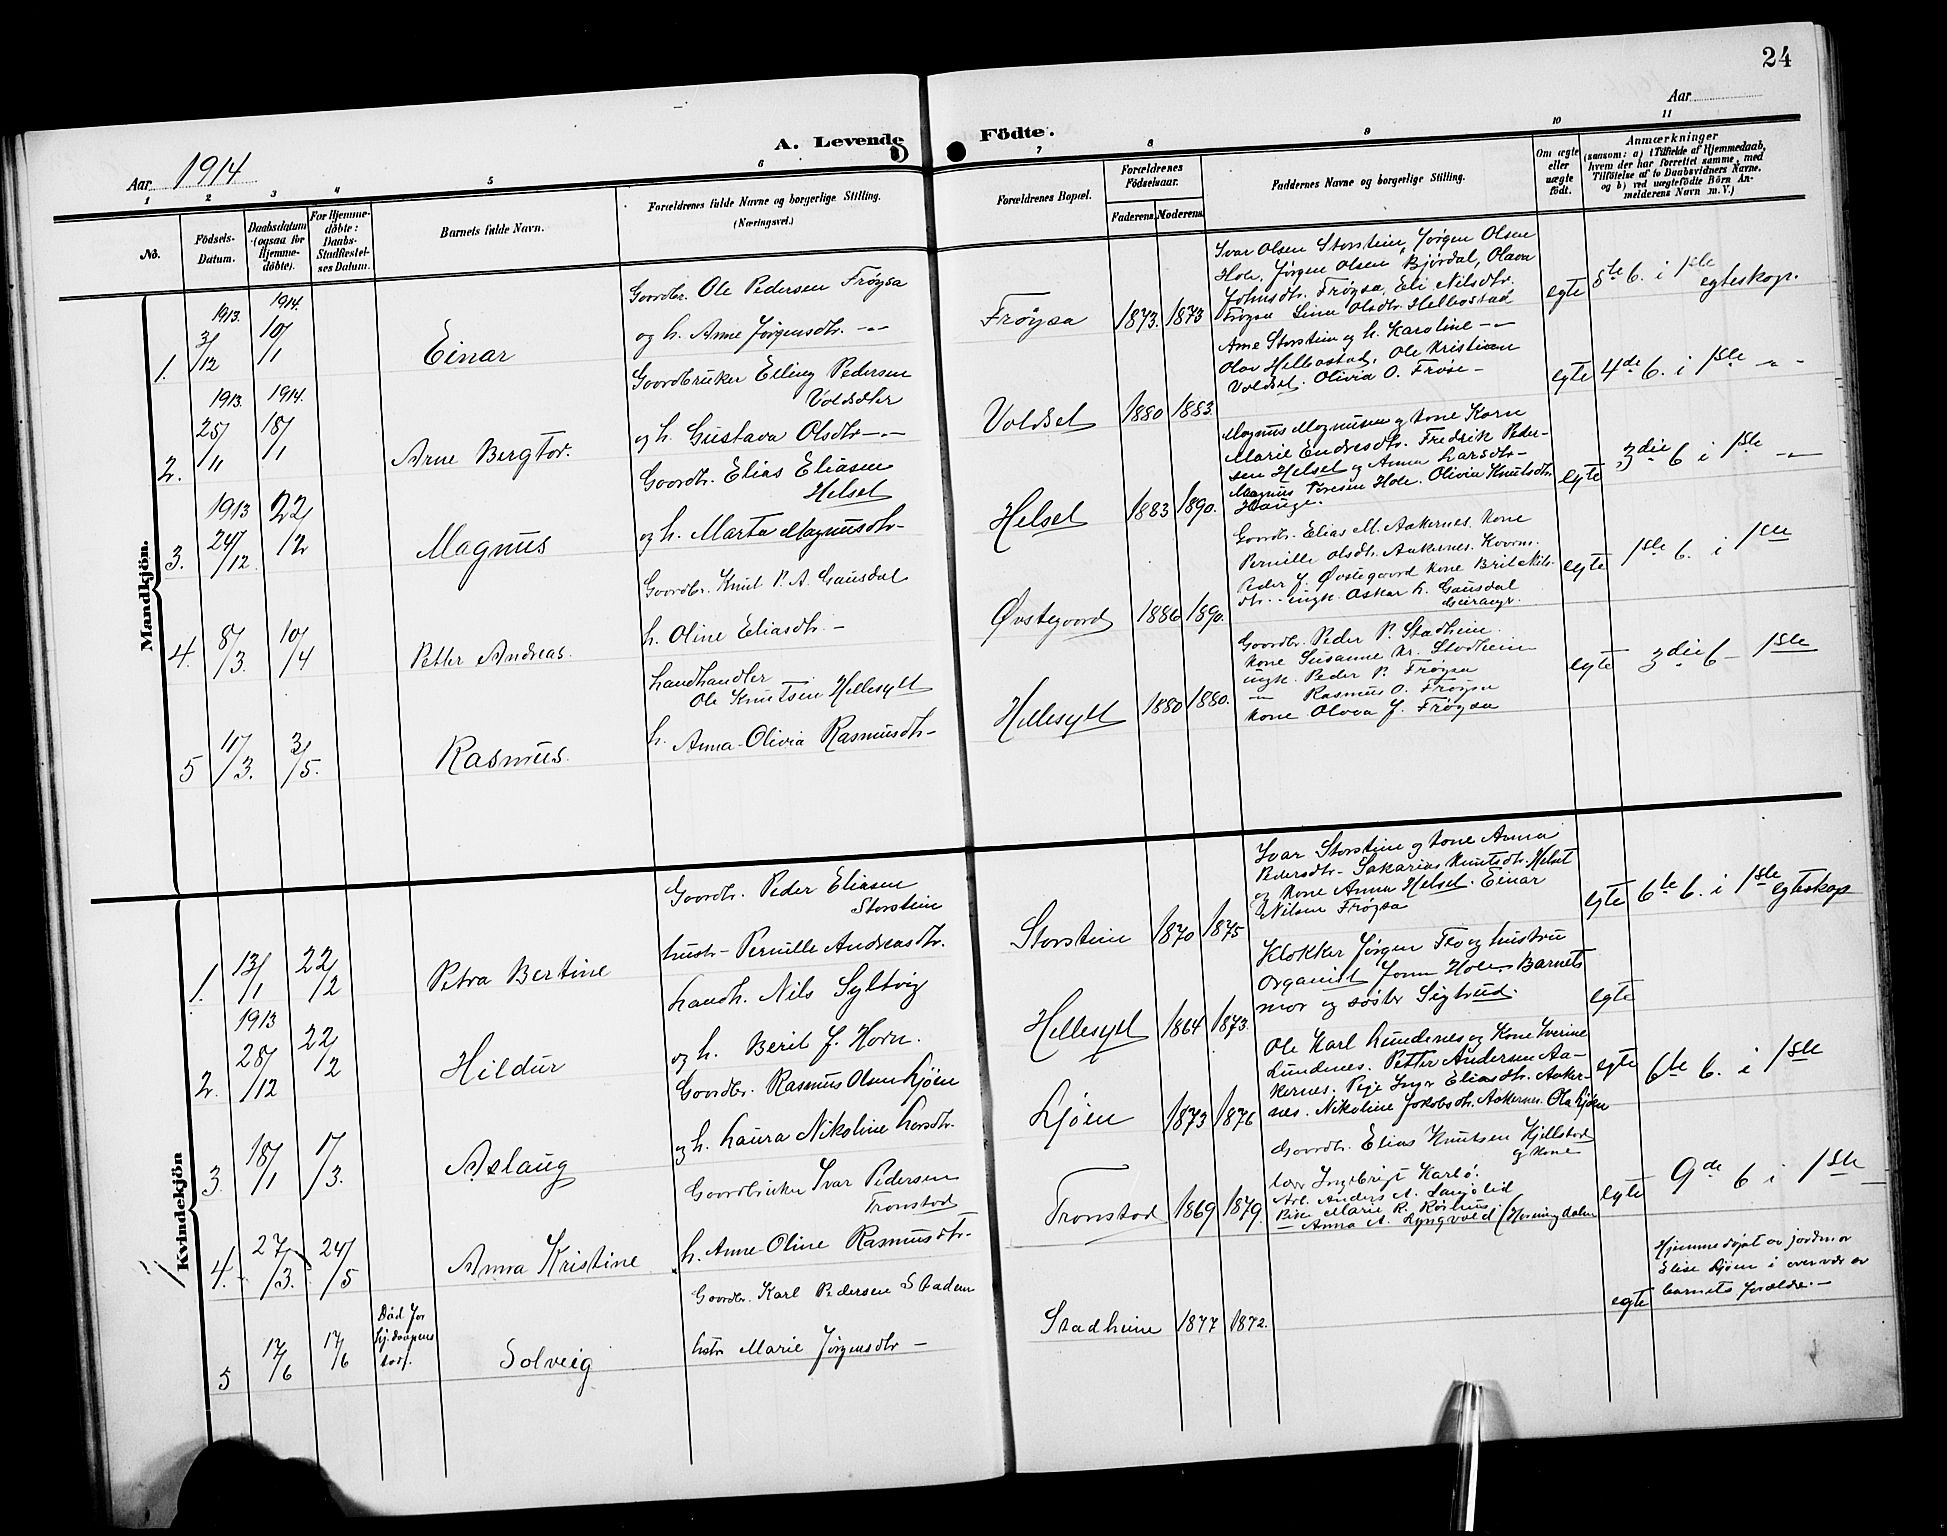 24
Aar
Aar 1914
A. Levende Födte.
1 2 3 4 5 6 7 8 9 10 11
No.
Födsels-
Datum.
Daabsdatum
(ogsaa for
Hjemme-
döbte).
For Hjemme-
döbte:
Daabs-
Stadfæstel-
ses Datum.
Barnets fulde Navn.
Forældrenes fulde Navne og borgerlige Stilling.
(Næringsvei.)
Forældrenes Bopæl.
Forældrenes
Födselsaar.
Faderens. Moderens.
Faddernes Navne og borgerlige Stilling.
Om ægte
eller
uægte
födt.
Anmærkninger
(saasom: a) i Tilfælde af Hjemmedaab,
hvem der har forrettet samme, med
Tilföielse af to Daabsvidners Navne.
og b) ved uægtefödte Börn An-
melderens Navn m. V.)
Mandkjön.
1. 1913. 3/12 1914. 10/1
Einar
Gaardbr. Ole Pedersen Frøysa
og h. Anne Jørgensdtr. -"-
Frøysa 1873. 1873
Ivar Olsen Storstein, Jørgen Olsen
Hole, Jørgen Olsen Bjørdal, Olava
Johnsdtr. Frøysa, Eli Nilsdtr.
Frøysa Lina Olsdtr. Hellostad
egte
5te b. i 1ste
egteskap.
2. 1913. 25/11 1914. 18/1
Arne Bergtor.
Gaardbruker Elling Pedersen
Voldsæter
og h. Gustava Olsdtr. -"-
Voldset 1880 1883.
Arne Storstein og h. Karoline -"-
Olav Hellostad, Ole Kristian
Voldset. Olivia O. Frøse -
egte 4de b. i 1ste -"-
3. 1913 24/12. 22/12
Magnus
Gaardbr. Elias Eliasen
Helset
og h. Marta Magnusdtr -
Helset 1883 1890.
Magnus Magnusen og kone Karn
Marie Endresdtr. Fredrik Peder-
sen Helset og Anna Larsdtr -
Magnus Toresen Hole. Olivia Knutsdtr.
Hauge.
egte 3die b i 1ste -"-
4. 8/3. 10/4
Petter Andreas.
Gaardbr. Knut P. A. Gausdal
h. Oline Eliasdtr. -
Øvstegaard 1886 1890.
Gaardbr. Elias M. Aakernes. Kone
Pernille Olsdtr. Aakernes.
Peder J. Øvstegaard kone Brit Nils-
dtr. - ungk. Oskar L. Gausdal
Geiranger.
egte 1ste b. i 1ste
5 11/3. 3/5.
Rasmus.
Landhandler
Ole Knutsen Hellesylt
h. Anna-Olivia Rasmusdtr -
Hellesylt 1880 1880.
Gaardbr. Peder P. Stadheim.
Kone Susanne Kr. Stadheim
ungk. Peder P. Frøysa
-"- Rasmus O. Frøysa
kone Olava J. Frøysa
egte 3die b - 1ste
Kvindekjön
1. 13/1 22/2
Petra Bertine
Gaardbr. Peder Eliasen
Storstein
hustr - Pernille Andreasdtr.
Storstein 1870 1875
Ivar Storstein og kone Anna
Pedersdtr - Sakarias Knutsdtr. Helset
og kone Anna Helset. Einar
Nilsen Frøysa
egte 6te b. i 1ste egteskap
2. 1913 28/12 22/2
Hildur
Landh. Nils Syltvig
og h. Berit J. Horn.
Hellesylt 1864 1873.
Klokker Jørgen Tvo og hustru
Organist Jonn Hole, Barnets
mor og søster Sigtrud.
egte
3. 18/1 1/3.
Aslaug
Gaardbr. Rasmus Olsen Ljøen
og h. Laura Nikoline Larsdtr.
Ljøen 1873 1876
Ole Karl Lundenes og Kone Iverine
Lundenes. Petter Andersen Aa-
kernes. Pige Inga Eliasdtr. Aaker-
nes. Nikoline Jakobsdtr. Aakernes. Ola Ljøen
egte 6te b. i 1ste
4. 27/3. 24/5
Anna Kristine
Gaardbruker Ivar Pedersen
Tronstad
h. Anne-Oline Rasmusdtr -
Tronstad 1869 1879.
Gaardbr. Elias Knutsen Kjellstad
og kone
Lærer Ingebrigt Karlsø.
Arb. Anders A. Langlid
Pike Marie R. Rørhus
- Anna A. Lyngvold (Horningdalen
egte 9de b i 1ste
5 17/6 17/6
Død før
Solveig
Gaardbr. Karl Pedersen Stadem
hstr Marie Jørgensdtr -
Stadheim 1877 1872.
egte
Hjemmedøpt av jordmor
Elise Ljøen i overvær av
barnets forældre. -